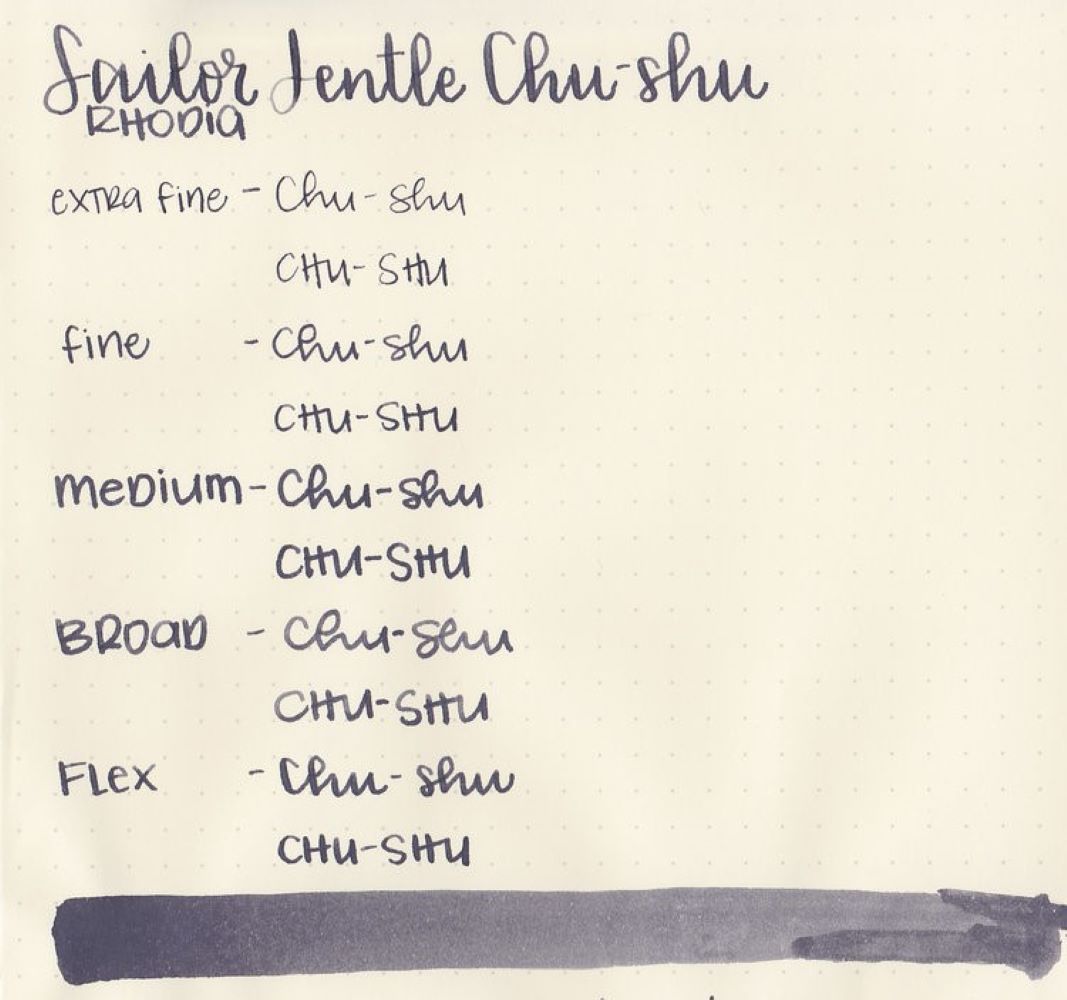 Sailor Jentle Chu-shu
RHODIA
extra fine - Chu-shu
CHU-SHU
fine - Chu-shu
CHU-SHU
medium - Chu-shu
CHU-SHU
BROAD - Chu-shu
CHU-SHU
FLex - Chu-shu
CHU-SHU